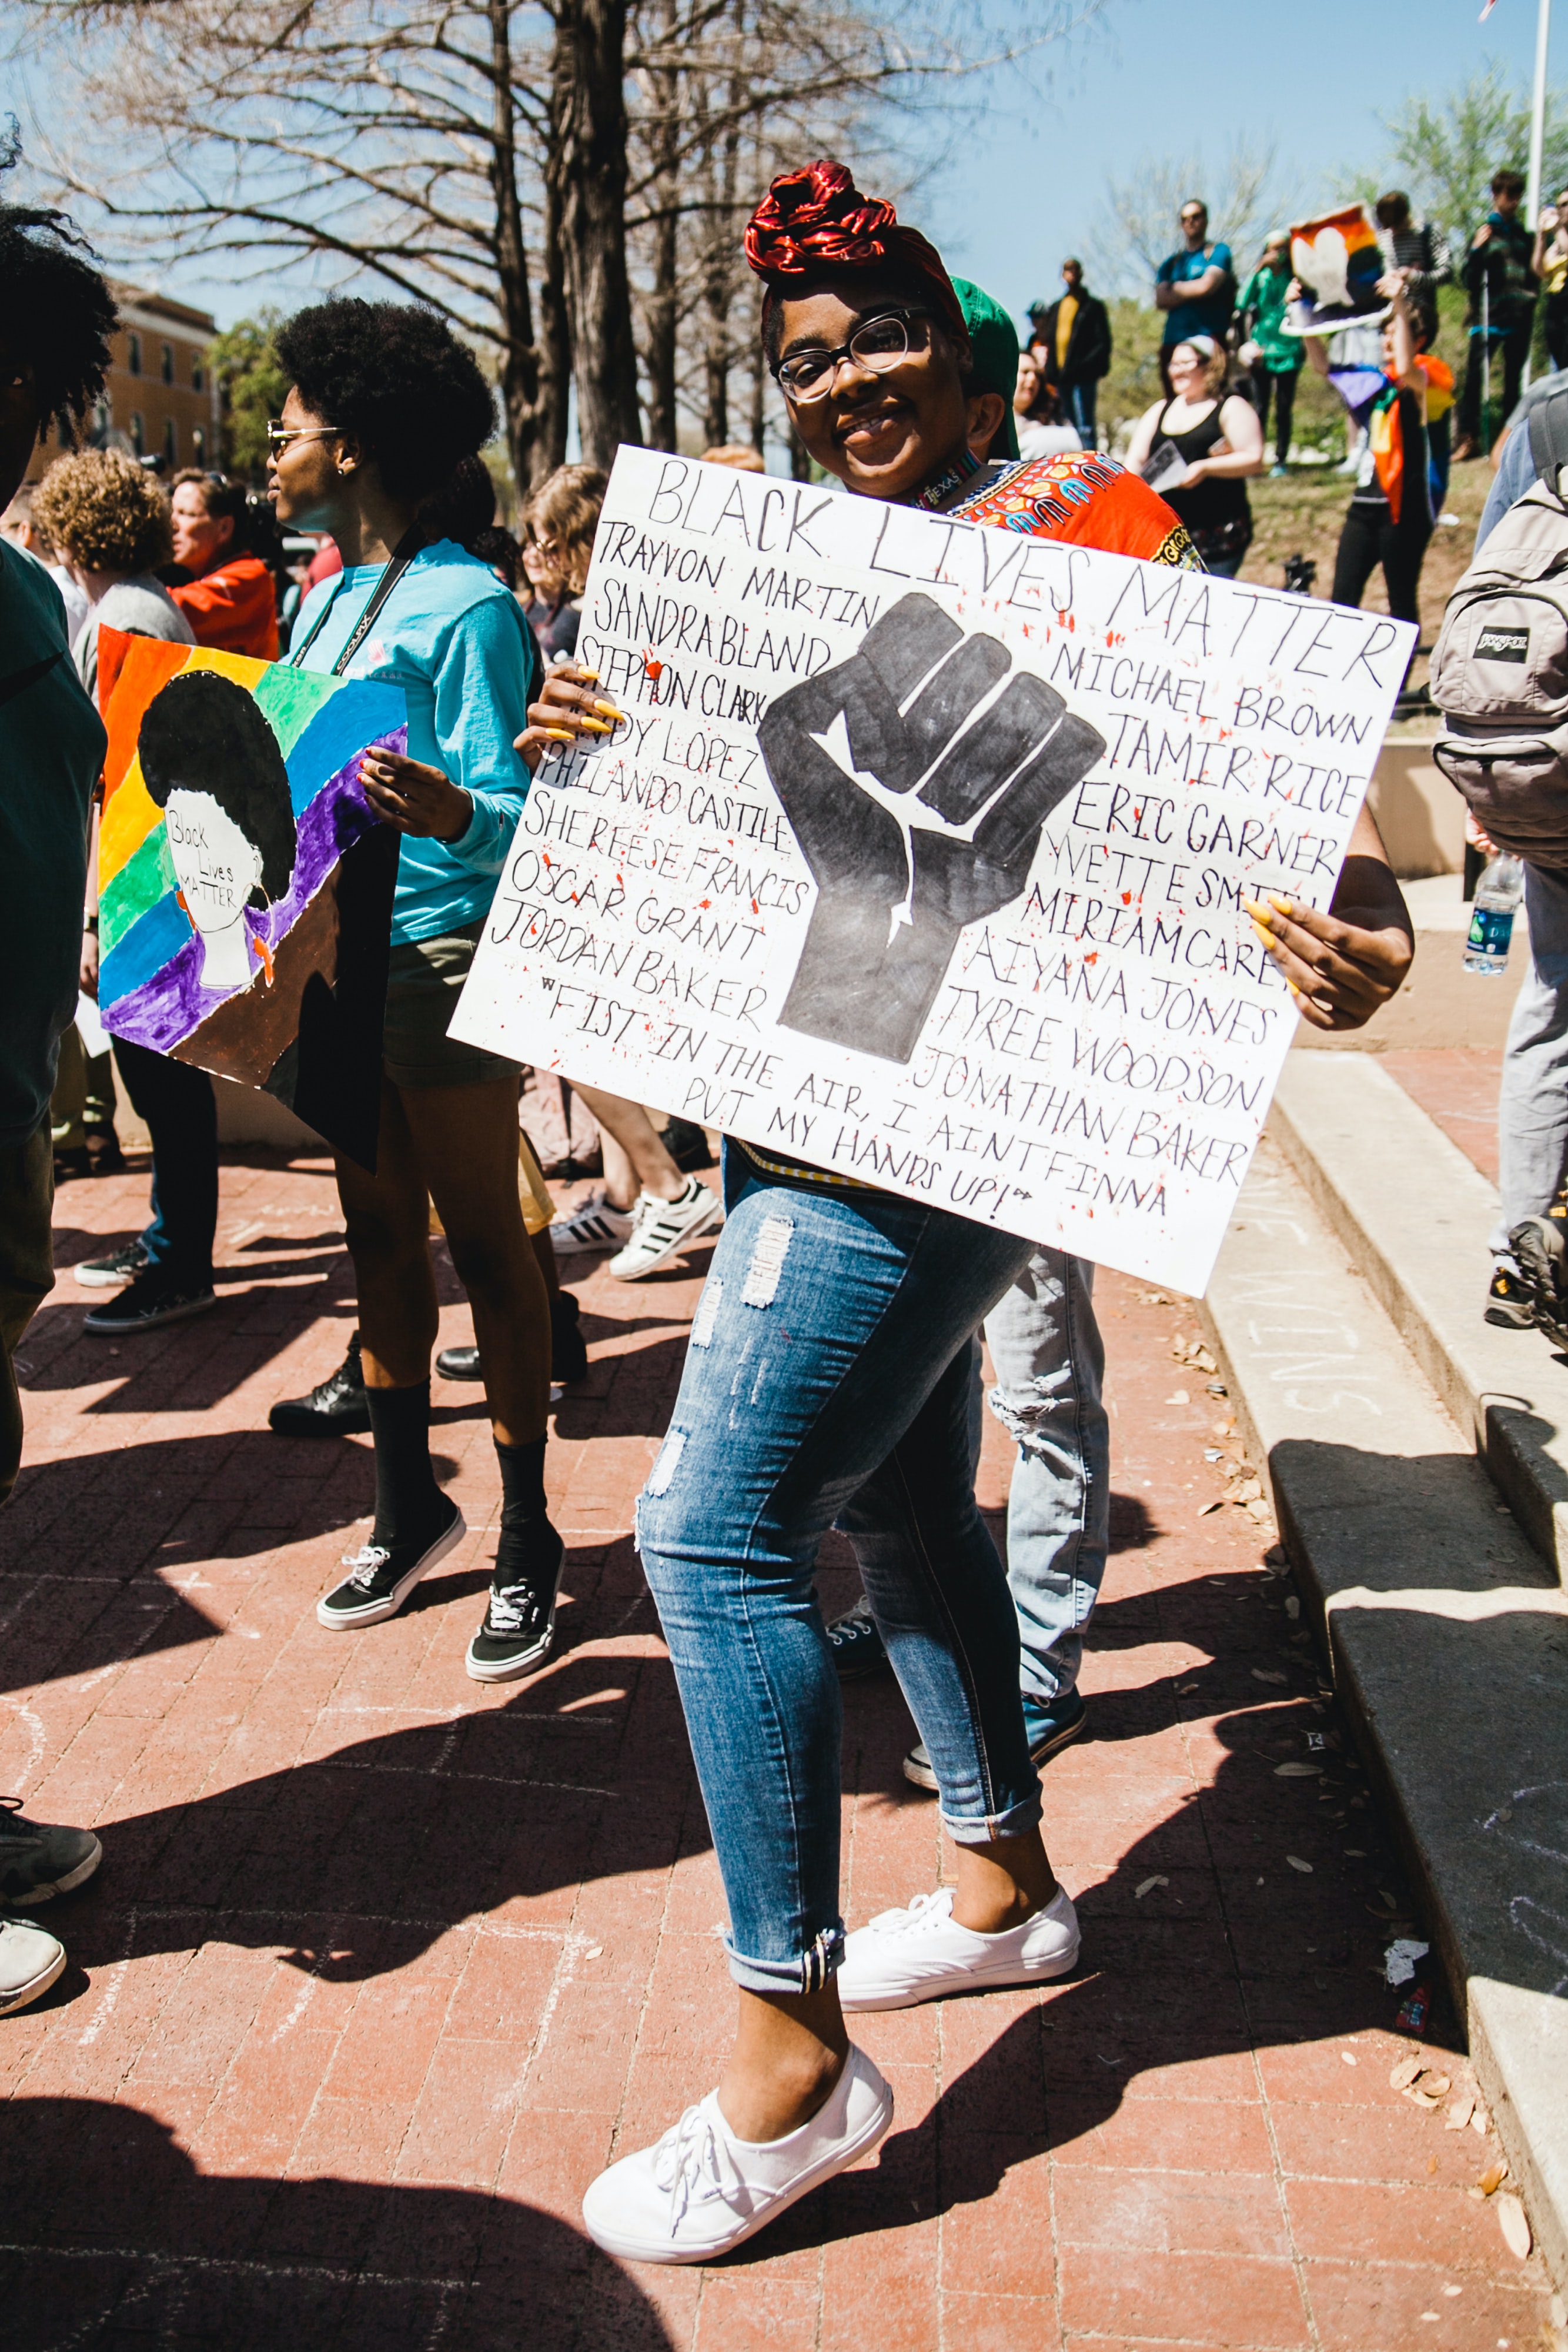 BLACK LIVES MATTER
TRAYVON MARTIN
SANDRA BLAND
STEPHON CLARK
LOPEZ
PHILANDO CASTILE
SHEREESE FRANCIS
OSCAR GRANT
JORDAN BAKER
MICHAEL BROWN
TAMIR RICE
ERIC GARNER
YVETTE SMITH
MIRIAM CAREY
AIYANA JONES
TYREE WOODSON
JONATHAN BAKER
"FIST IN THE AIR, I AINT FINNA
PUT MY HANDS UP!"
Black
Lives
MATTER
TEXAS
COOLPIX
JANSPORT
WINS